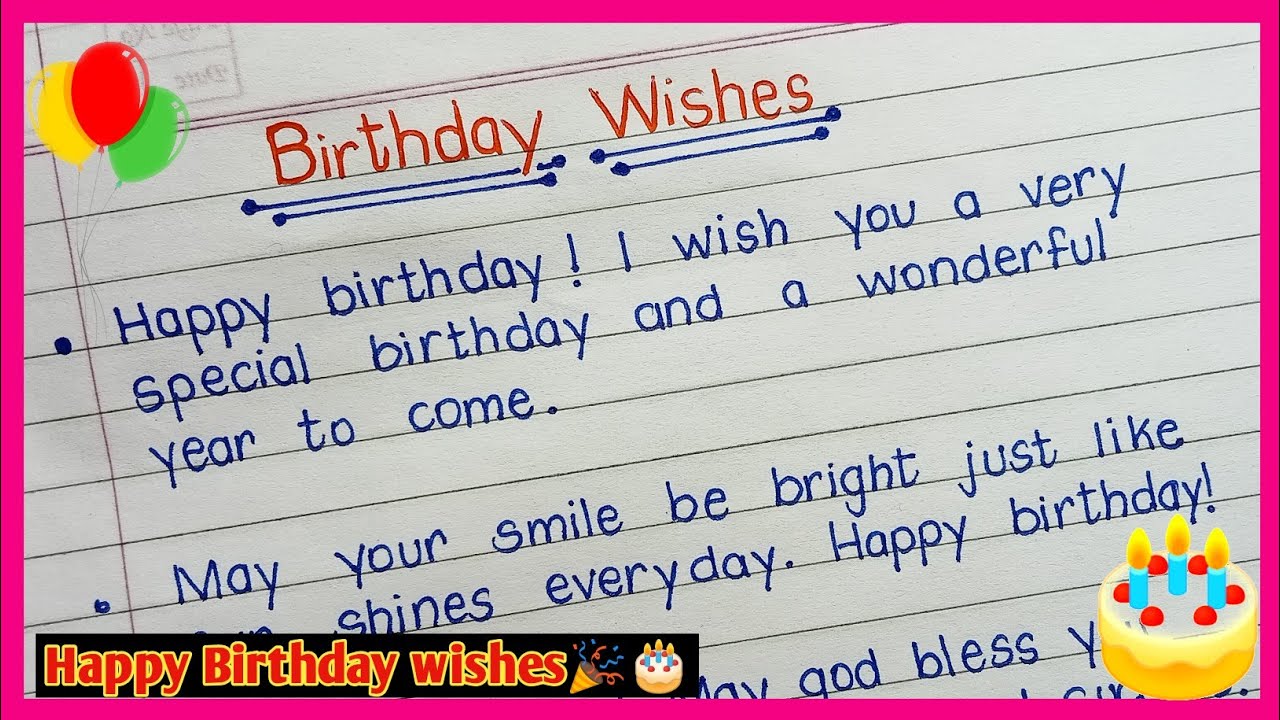 Birthday Wishes
• Happy birthday! I wish you a very
special birthday and a wonderful
year to come.
• May your smile be bright just like
shines everyday. Happy birthday!
May god bless
Happy Birthday wishes🎉🎂